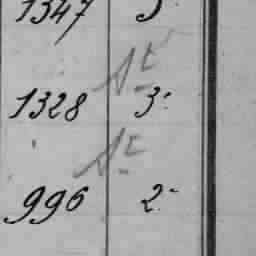 1347
St
1328 3.
St
996 2.